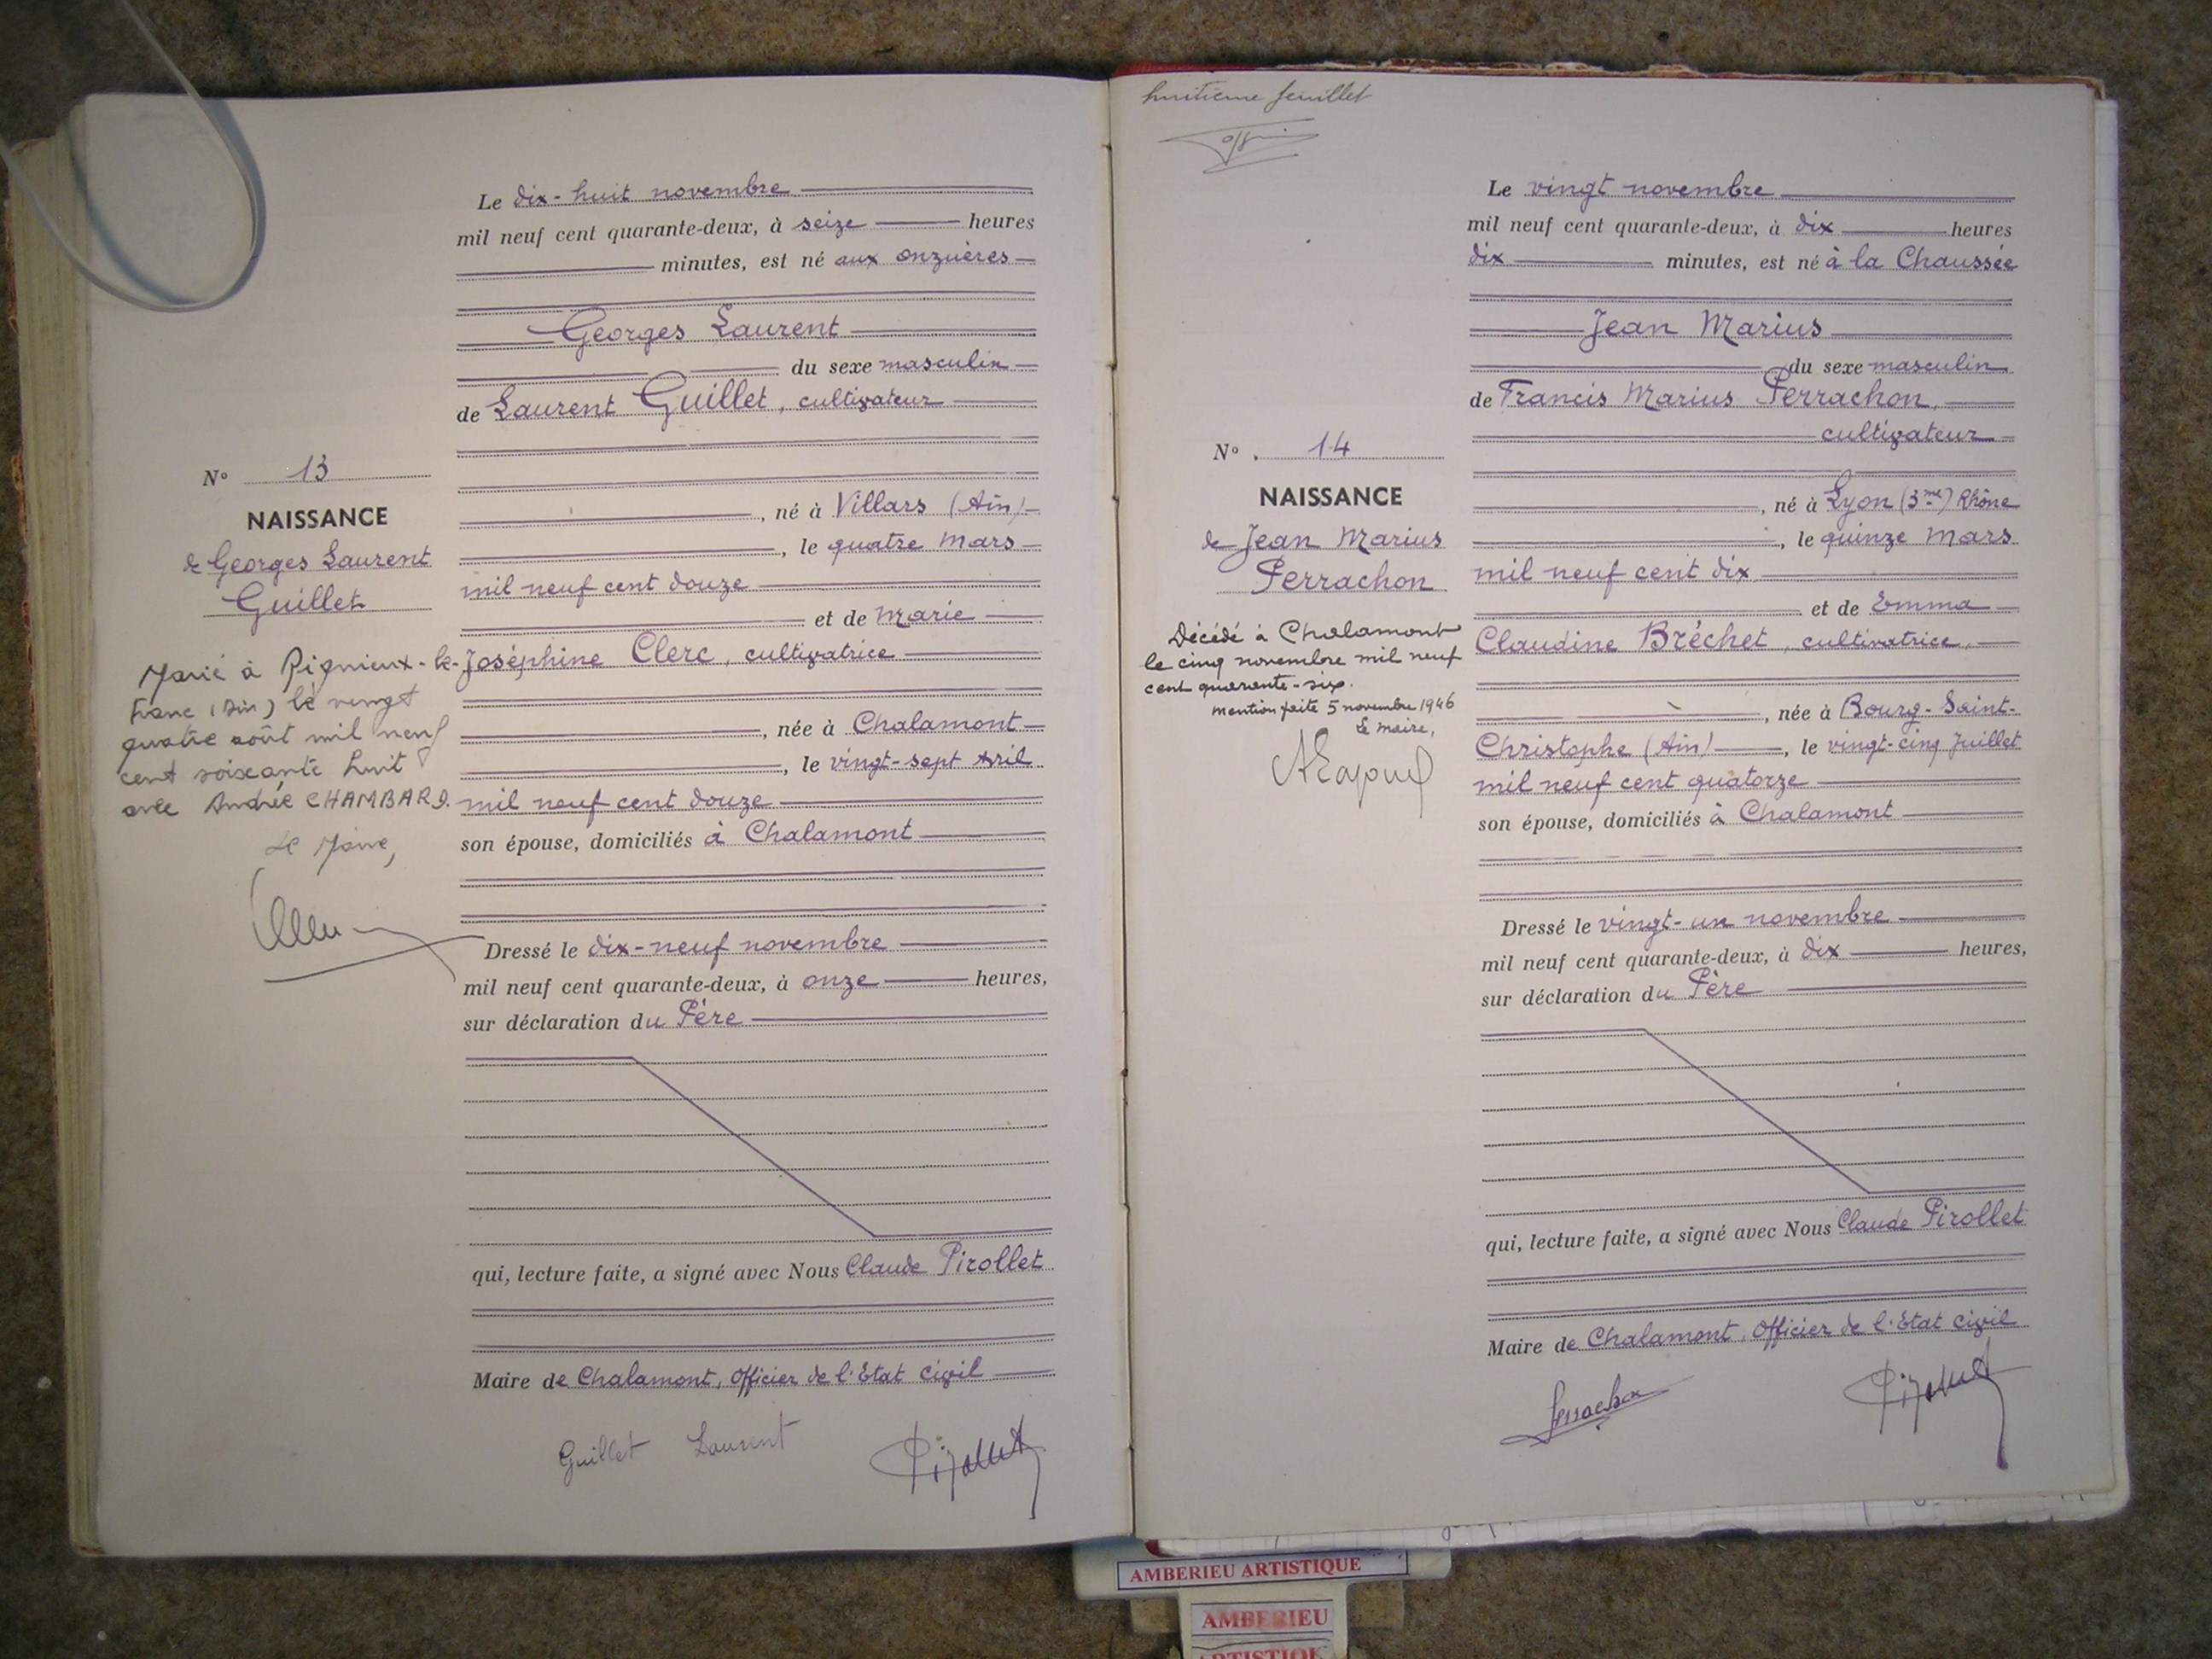 Le dix-huit novembre
mil neuf cent quarante-deux, à seize heures
minutes, est né aux onzuères
Georges Laurent
du sexe masculin
de Laurent Guillet, cultivateur
N° 13
NAISSANCE
de Georges Laurent
Guillet
, né à Villars (Ain)
, le quatre Mars
mil neuf cent douze
et de Marie
Joséphine Clerc, cultivatrice
, née à Chalamont
, le vingt-sept Avril
mil neuf cent douze
son épouse, domiciliés à Chalamont
Marié à Rignieux-le-
Franc (Ain) le vingt
quatre août mil neuf
cent soixante huit
avec Andrée CHAMBARD.
Le Maire,
Dressé le dix-neuf novembre
mil neuf cent quarante-deux, à onze heures,
sur déclaration du Père
qui, lecture faite, a signé avec Nous Claude Pirollet
Maire de Chalamont, Officier de l'Etat civil
Guillet Laurent
Pirollet
huitième feuillet
Le vingt novembre
mil neuf cent quarante-deux, à dix heures
dix minutes, est né à la Chaussée
Jean Marius
du sexe masculin
de Francis Marius Perrachon,
cultivateur
N° 14
NAISSANCE
de Jean Marius
Perrachon
Décédé à Chalamont
le cinq novembre mil neuf
cent quarante-six.
mention faite 5 novembre 1946
Le maire,
, né à Lyon (3me) Rhône
, le quinze Mars
mil neuf cent dix
et de Emma
Claudine Bréchet, cultivatrice,
, née à Bourg-Saint-
Christophe (Ain), le vingt-cinq Juillet
mil neuf cent quatorze
son épouse, domiciliés à Chalamont
Dressé le vingt-un novembre
mil neuf cent quarante-deux, à dix heures,
sur déclaration du Père
qui, lecture faite, a signé avec Nous Claude Pirollet
Maire de Chalamont, Officier de l'Etat civil
Perrachon
Pirollet
AMBERIEU ARTISTIQUE
AMBERIEU